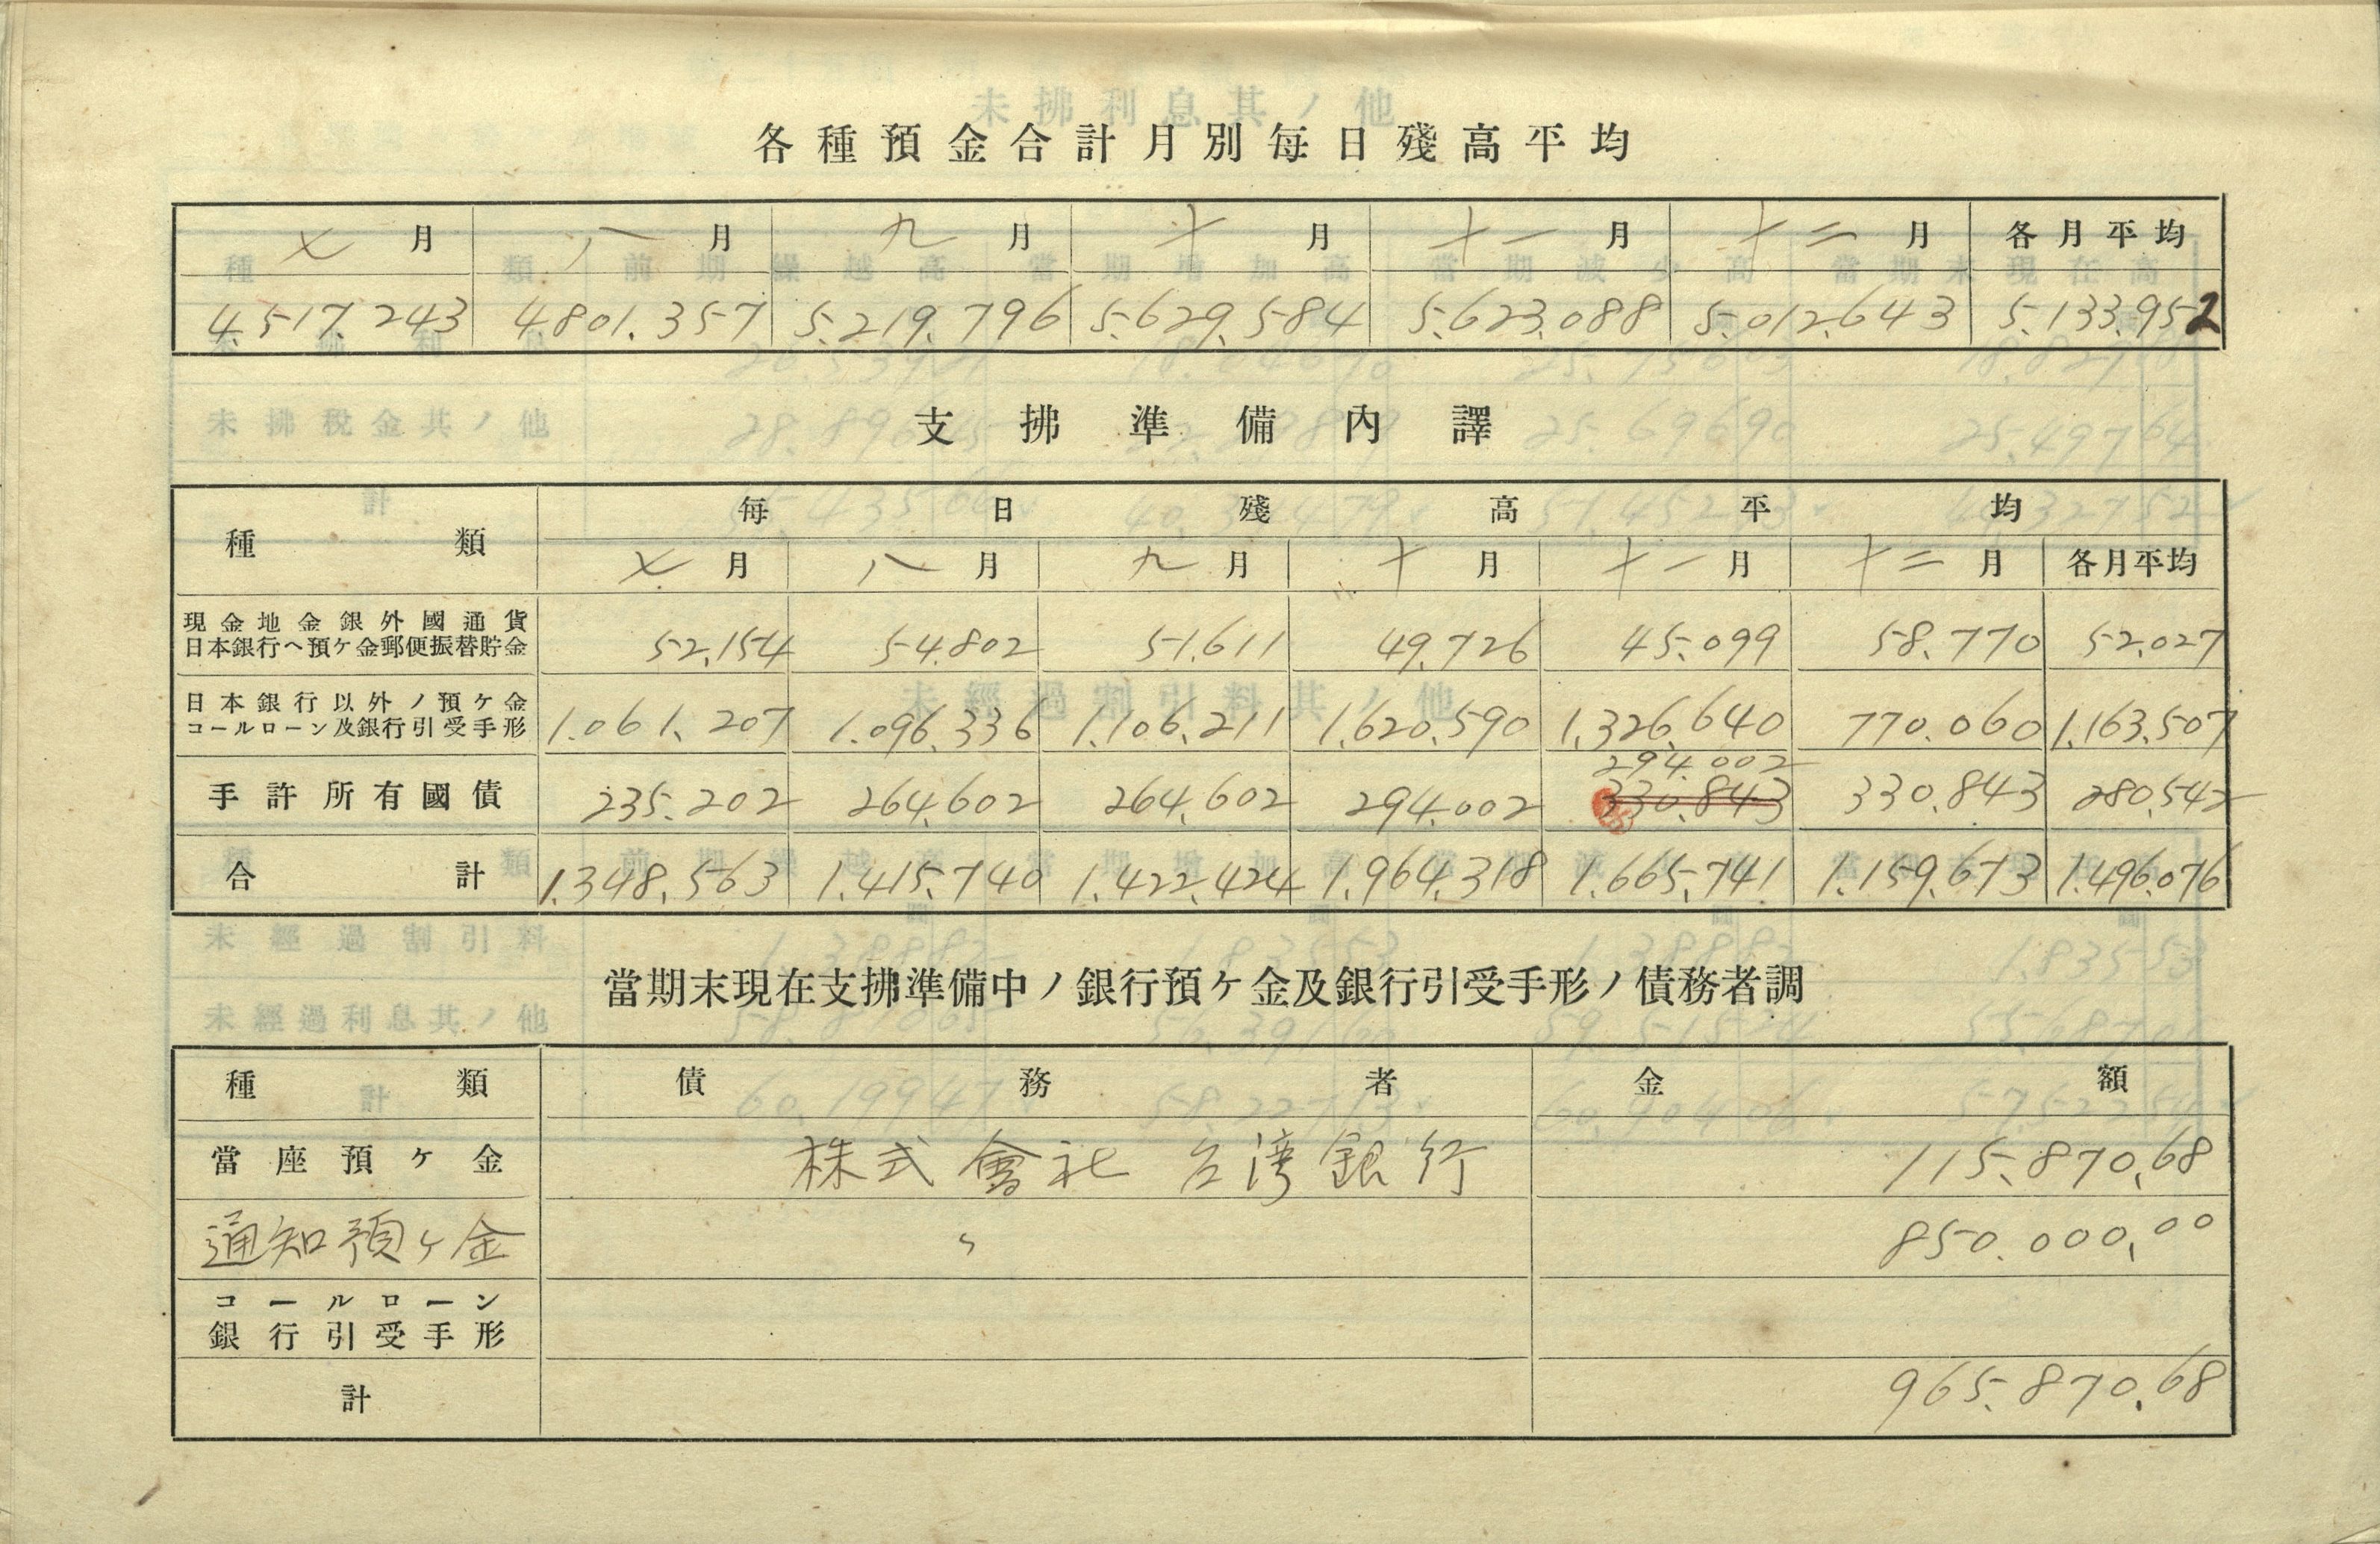 各種預金合計月別毎日殘高平均
七月 八月 九月 十月 十一月 十二月 各月平均
4.517.243 4.801.357 5.219.796 5.629.584 5.623.088 5.012.643 5.133.952
支拂準備內譯
種類 毎日殘高平均
七月 八月 九月 十月 十一月 十二月 各月平均
現金地金銀外國通貨
日本銀行ヘ預ケ金郵便振替貯金
52.154 54.802 51.611 49.726 45.099 58.770 52.027
日本銀行以外ノ預ケ金
コールローン及銀行引受手形
1.061.207 1.096.336 1.106.211 1.620.590 1.326.640 770.060 1.163.507
294.002
手許所有國債 235.202 264.602 264.602 294.002 330.843 330.843 280.542
合計 1.348.563 1.415.740 1.422.424 1.964.318 1.665.741 1.159.673 1.496.076
當期末現在支拂準備中ノ銀行預ケ金及銀行引受手形ノ債務者調
種類 債務者 金額
當座預ケ金 株式會社 台湾銀行 115.870.68
通知預ケ金 〃 850.000.00
コールローン
銀行引受手形
計 965.870.68